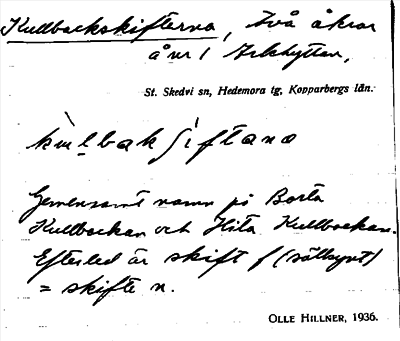 Kullbackskifterna, två åkrar
å nr 1 Arkhyttan,
St. Skedvi sn, Hedemora tg, Kopparbergs län.
kùlbakʃíftana
Gemensamt namn på Borta
Kullbackan och Hita Kullbackan.
Efterled är skift f (sällsynt)
= skifte n.
OLLE HILLNER, 1936.